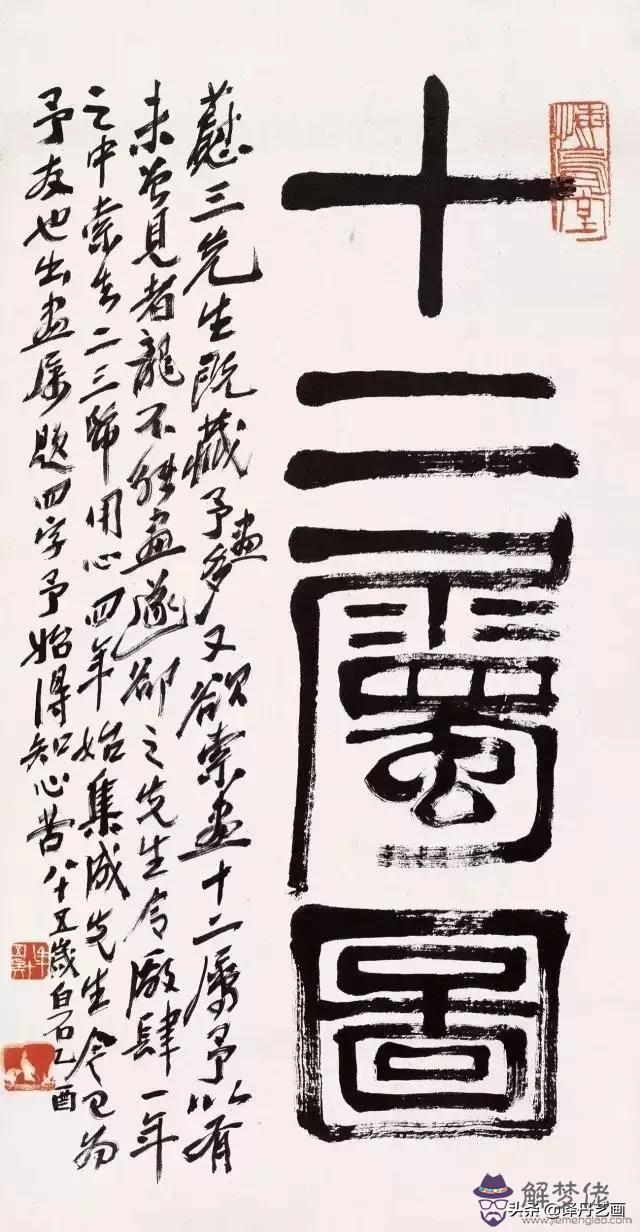 十二屬圖
蓺三先生既藏予畫多又欲索畫十二屬予以有
未曾見者龍不能畫遂卻之先生令廠肆一年
之中索去二三幀用心四年始集成先生今已為
予友也出畫属題四字予始得知心苦八十五歲白石乙酉
解梦佬
www.jiemenglao.com
头条@译丹艺画